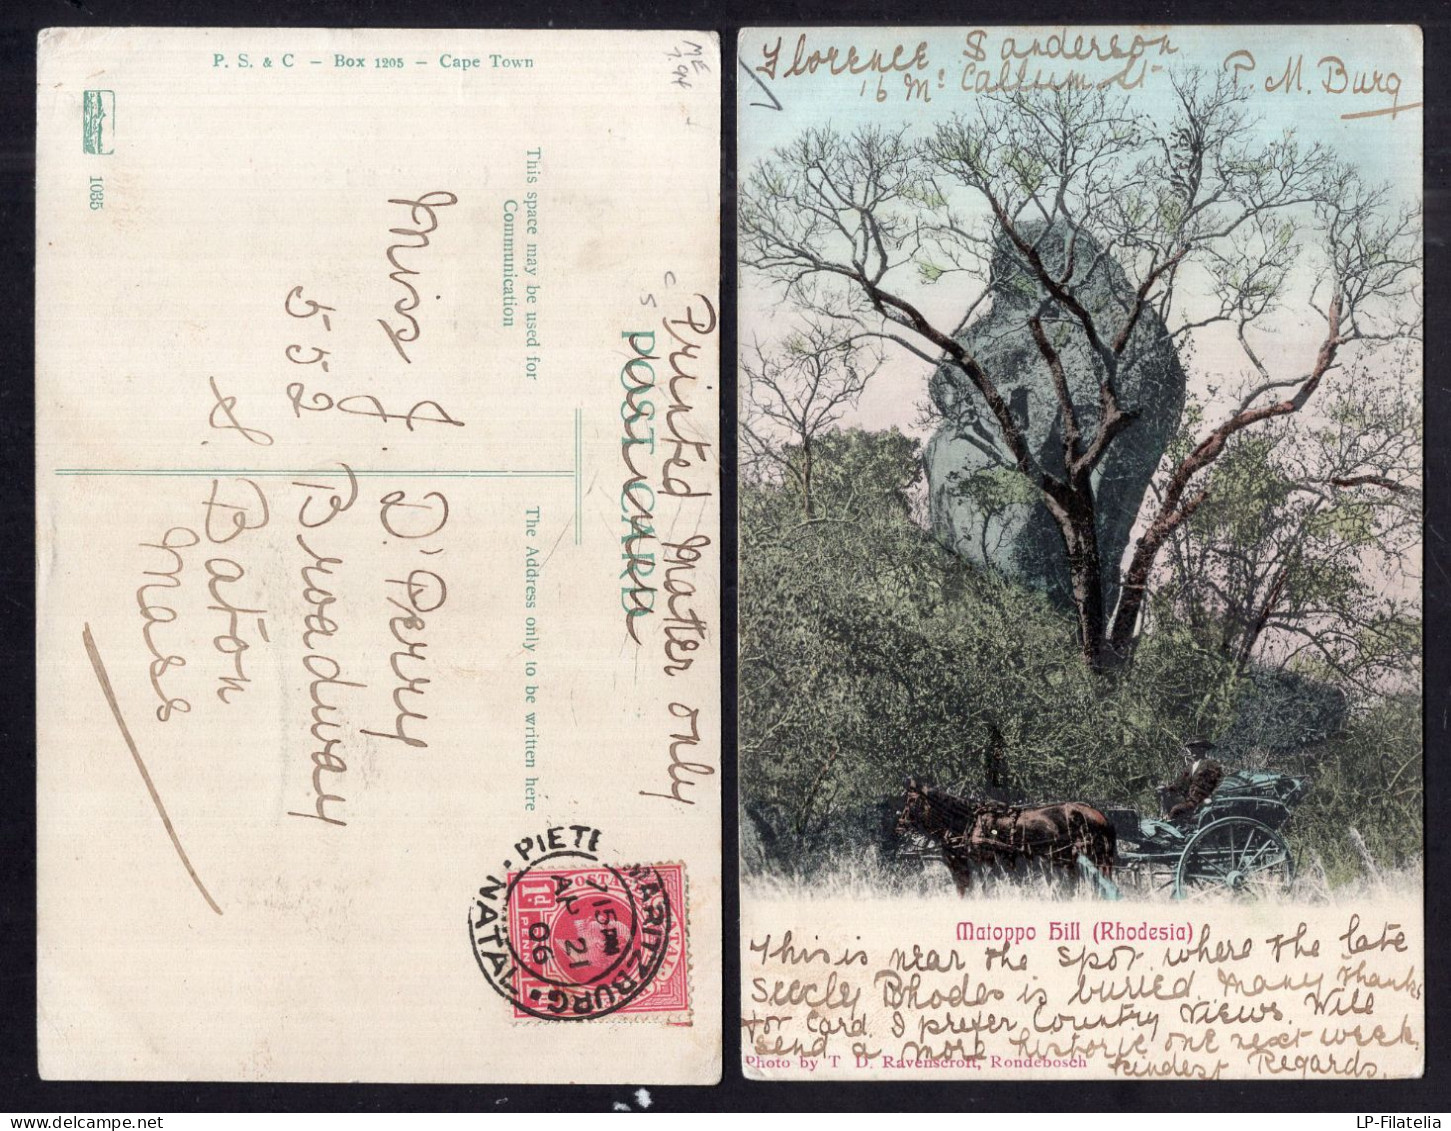 P. S. & C – Box 1205 – Cape Town
ME
1035
This space may be used for
Communication
POST CARD
The Address only to be written here
Printed Mater only
Miss J. D'Perry
552 Broadway
S. Baton
Mass
PIETERMARITZBURG
NATAL
7 15 PM
AP 21
06
POSTAGE
1D
Florence Sanderson
16 Mc Callum St P. M. Burg
Matoppo Hill (Rhodesia)
This is near the spot where the late
Seecly Rhodes is buried Many thanks
for Card. I prefer Country Views. Will
send a more historic one next week.
Photo by T. D. Ravenscroft, Rondebosch
Kindest Regards.
LP-Filatelia